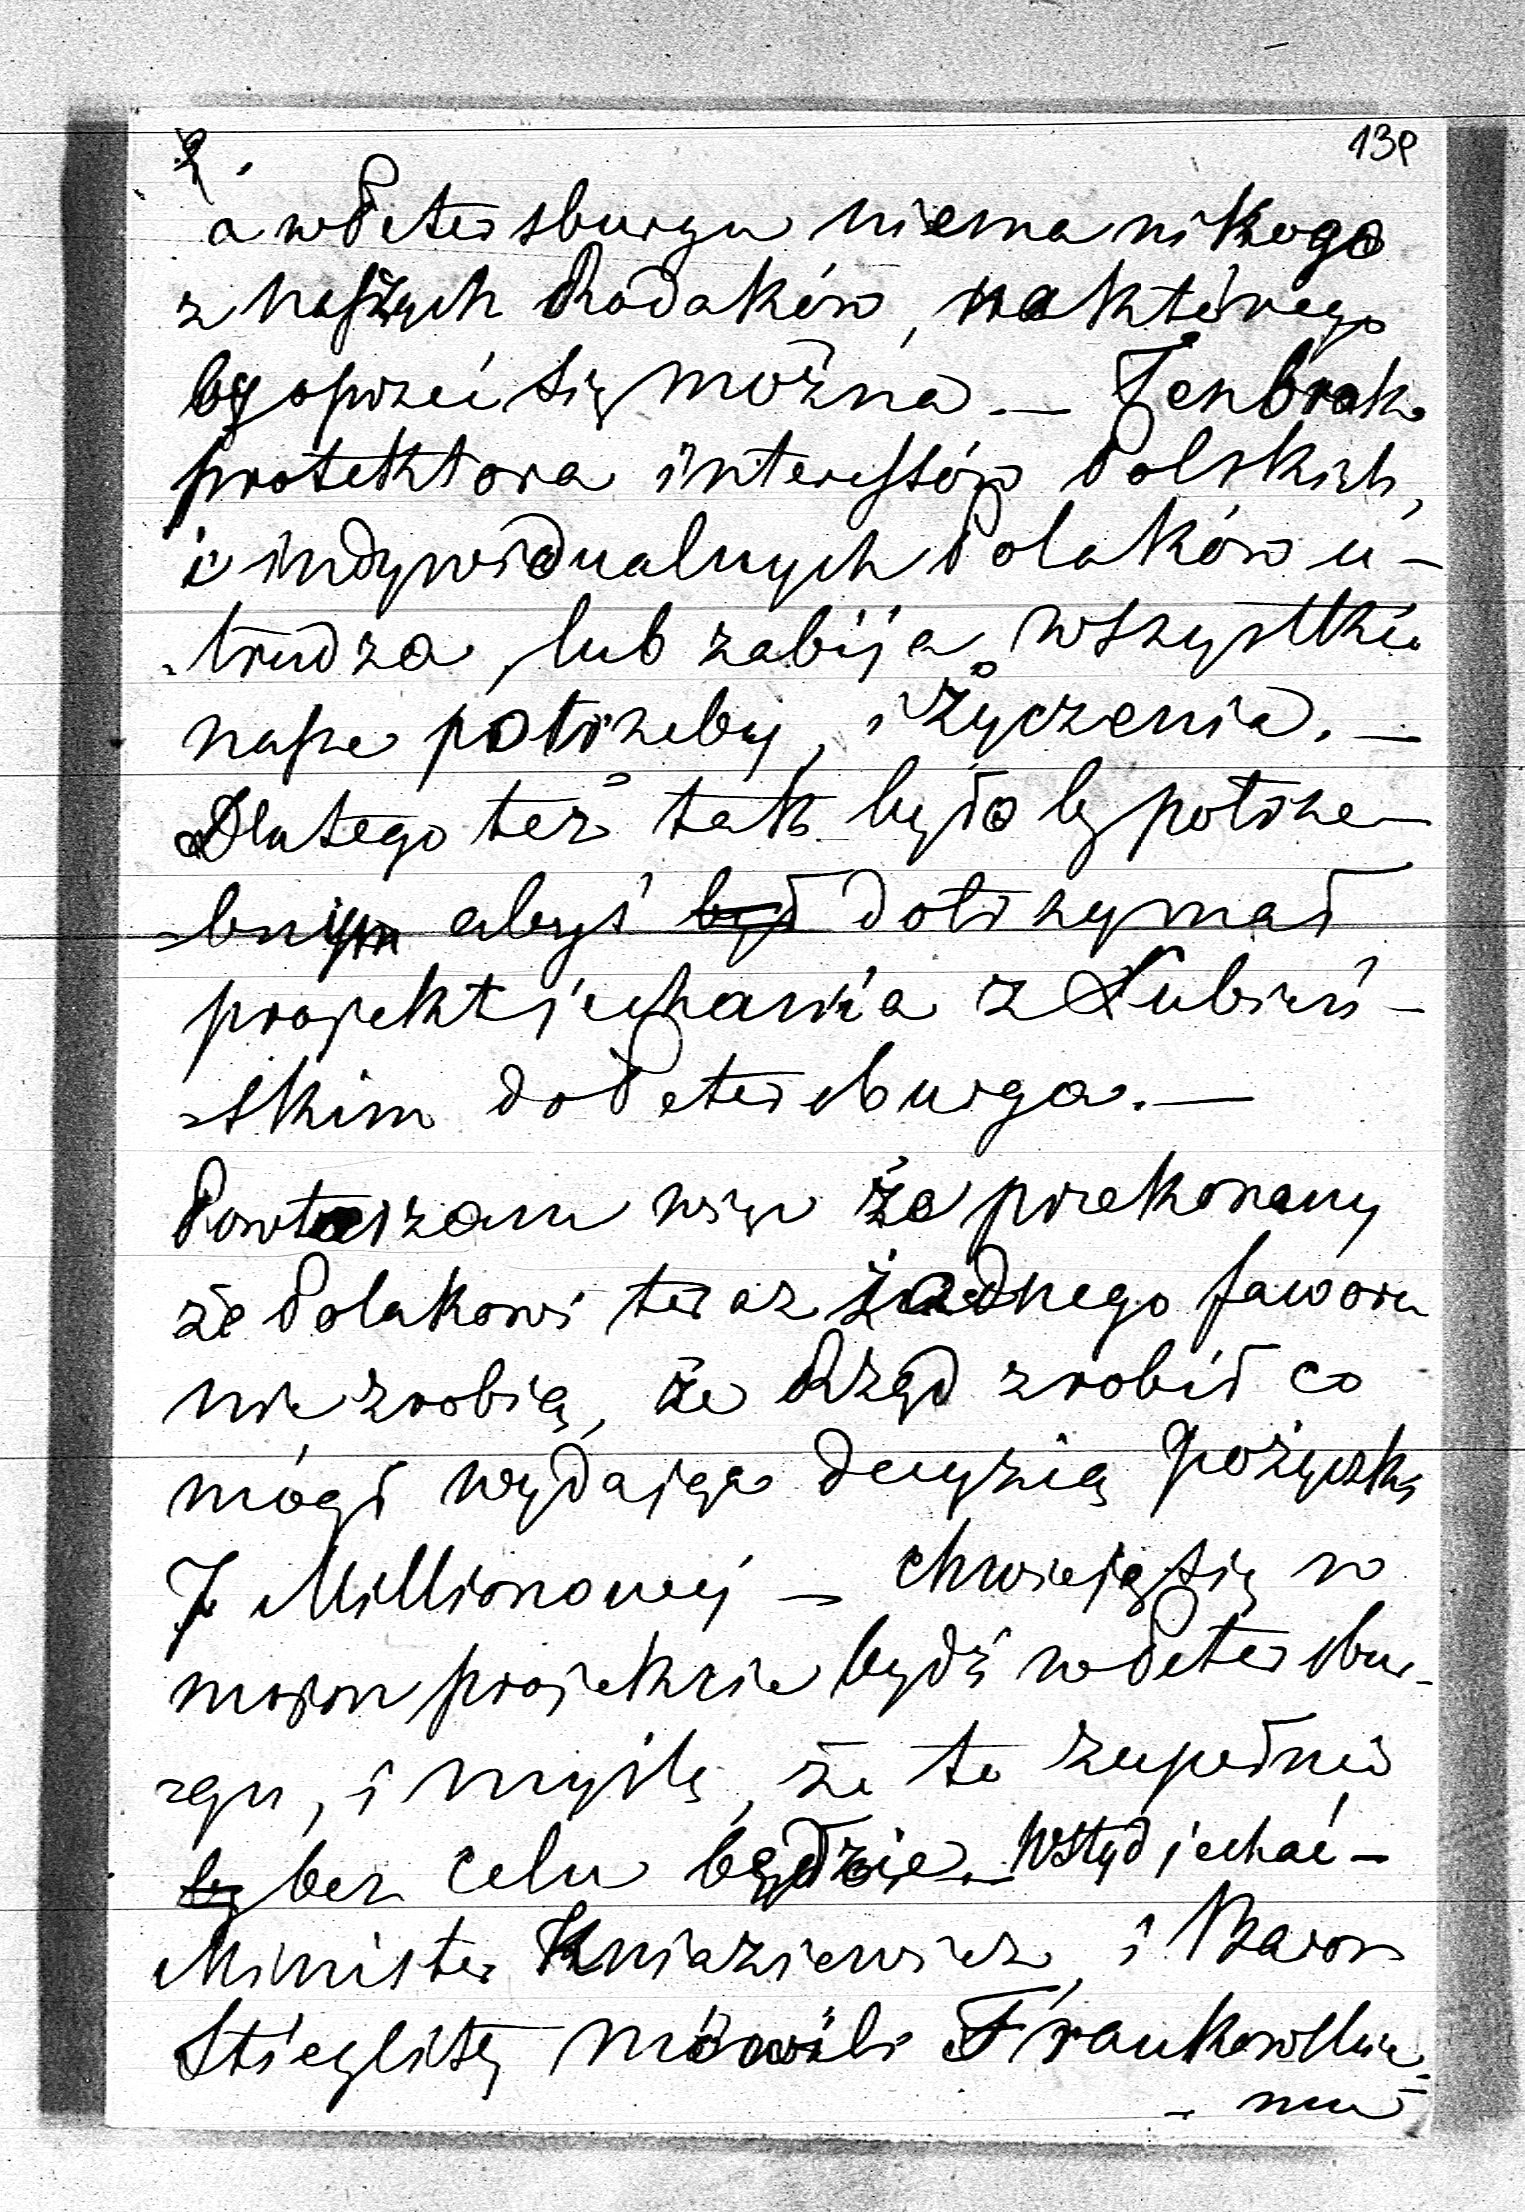 2.
139
a w Petersburgu niema nikogo
z naszych Rodaków, na którego
by oprzeć się można. — Ten brak
protektora interessów Polskich,
i indywidualnych Polaków u-
-trudza, lub zabija wszystkie
nasze potrzeby, i życzenia. —
Dlatego też tak było by potrze-
-bnym abyś był dotrzymał
projekt jechania z Łubień-
-skim do Petersburga. —
Powtarzam więc że przekonany
że Polakowi teraz żadnego faworu
nie zrobią, że Rząd zrobił co
mógł wydając decyzią pożyczki
7 Millionowej — chwieję się w
moim projekcie bydź w Petersbur-
-gu, i myślę, że to zupełnie
by bez celu będzie. — Wstyd jechać —
Minister Kniaziewicz, i Baron
Stieglitz mówili Frankowskie-
-mu